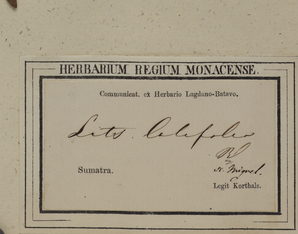 HERBARIUM REGIUM MONACENSE.
Communicat. ex Herbario Lugduno-Batavo.
Sumatra.
Miquel.
Legit Korthals.